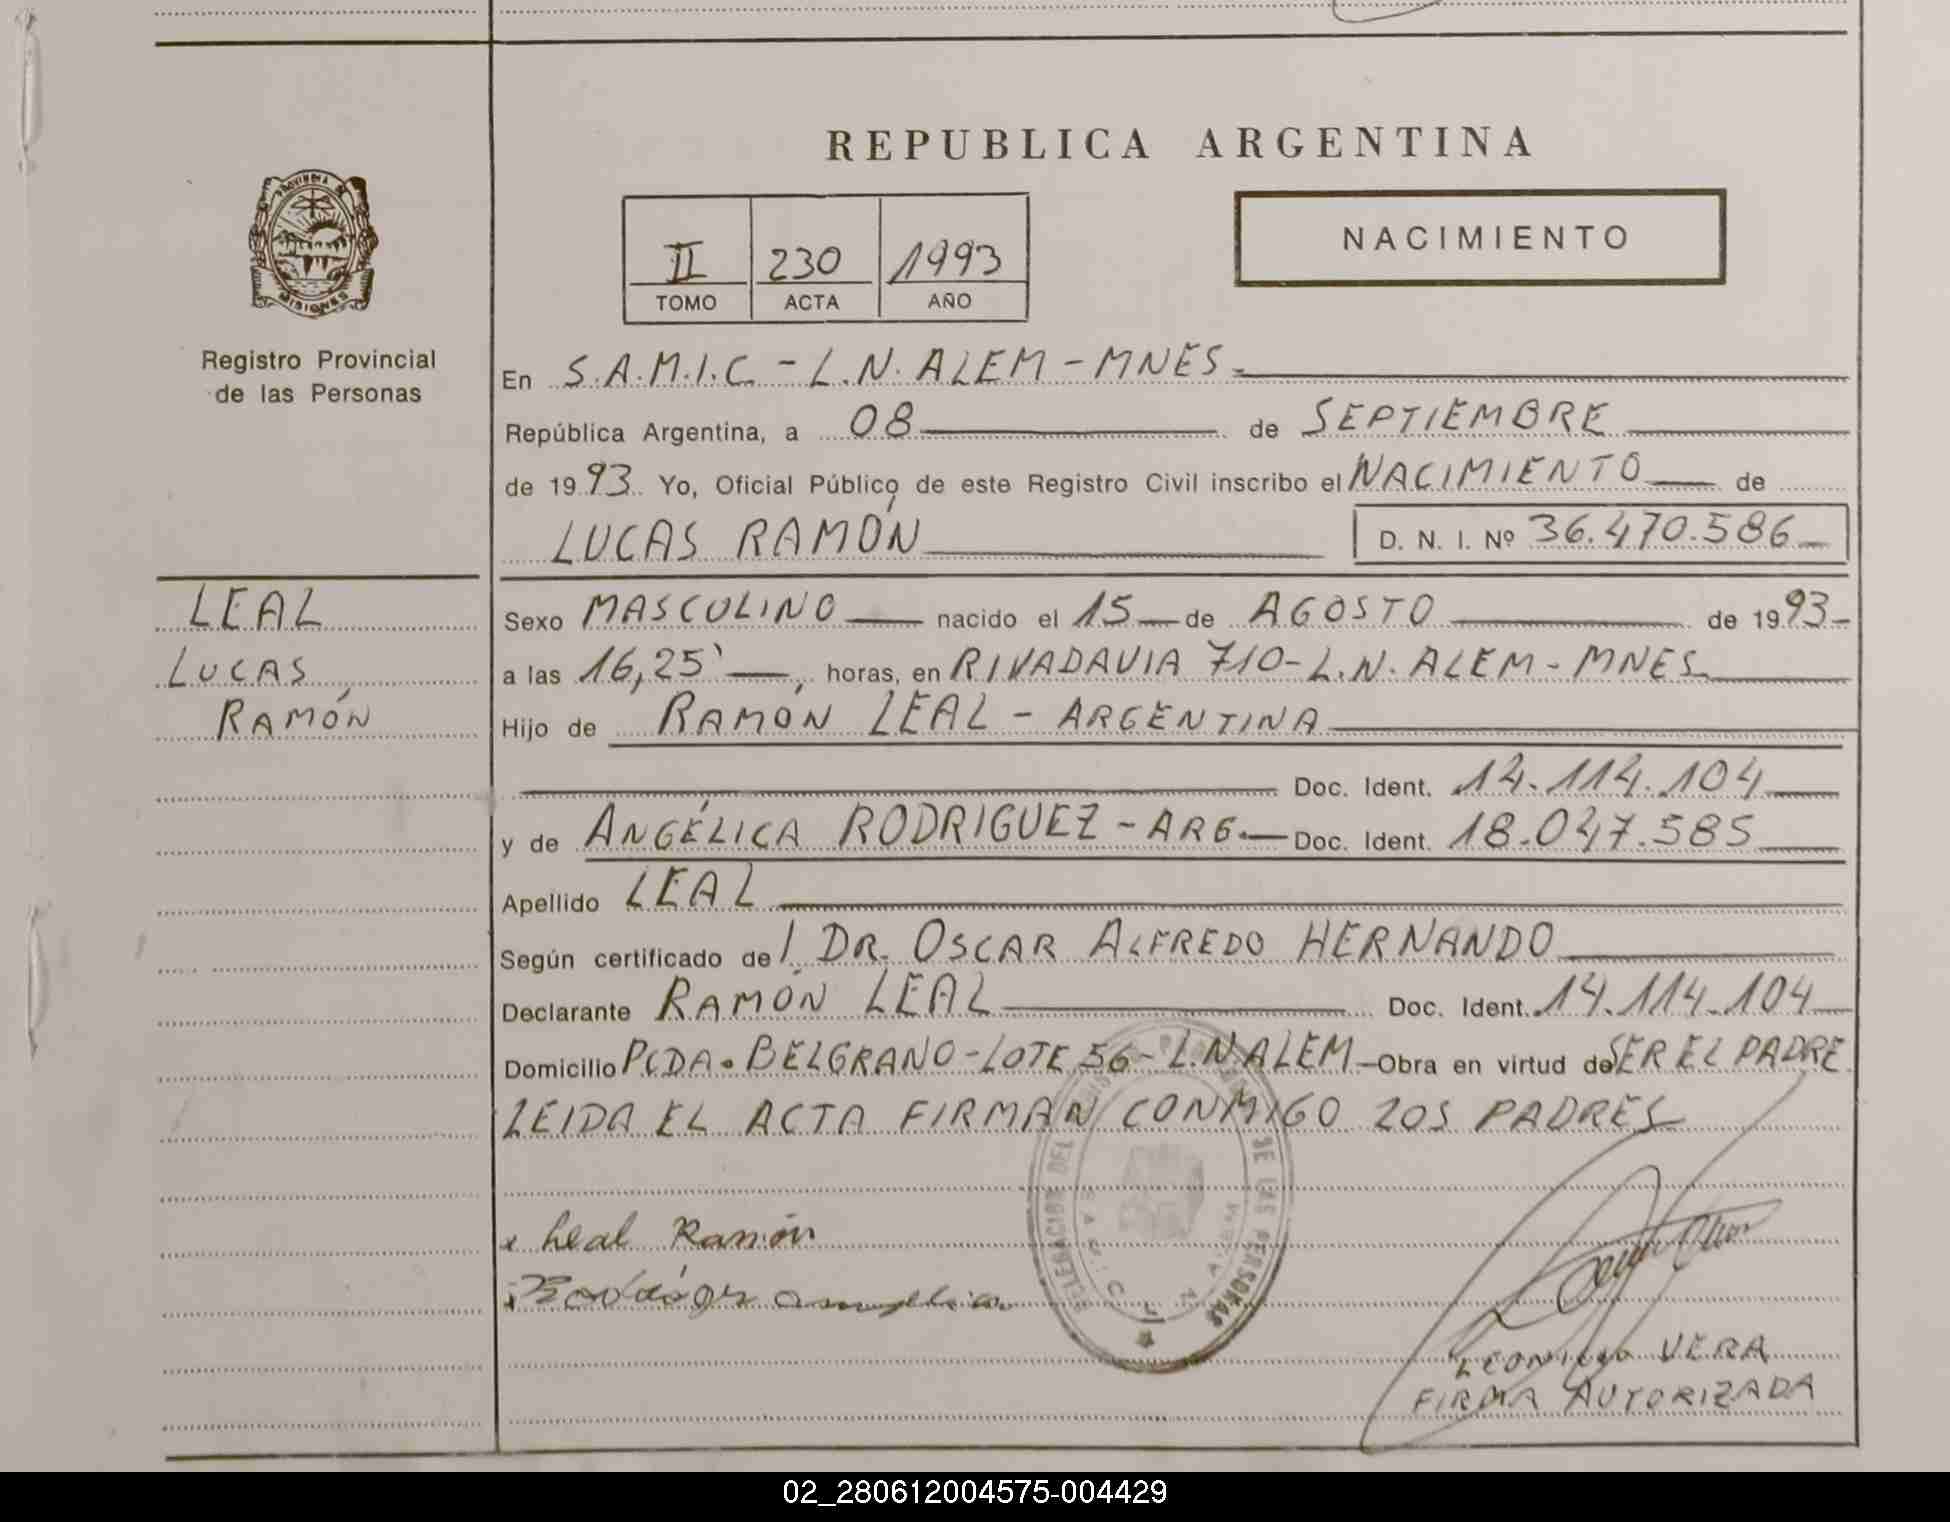 REPUBLICA ARGENTINA
PROVINCIA DE
MISIONES
Registro Provincial
de las Personas
II 230 1993
TOMO ACTA AÑO
NACIMIENTO
En S.A.M.I.C. - L.N. ALEM - MNES.
República Argentina, a 08 de SEPTIEMBRE
de 1993. Yo, Oficial Público de este Registro Civil inscribo el NACIMIENTO de
LUCAS RAMÓN D. N. I. Nº 36.470.586
LEAL
LUCAS
RAMÓN
Sexo MASCULINO nacido el 15 de AGOSTO de 1993
a las 16,25' horas, en RIVADAVIA 710 - L.N. ALEM - MNES
Hijo de RAMÓN LEAL - ARGENTINA
Doc. Ident. 14.114.104
y de ANGÉLICA RODRIGUEZ - ARG. Doc. Ident. 18.047.585
Apellido LEAL
Según certificado del DR. OSCAR ALFREDO HERNANDO
Declarante RAMÓN LEAL Doc. Ident. 14.114.104
Domicilio PCDA. BELGRANO - LOTE 56 - L.N. ALEM - Obra en virtud de SER EL PADRE
LEIDA EL ACTA FIRMAN CONMIGO LOS PADRES
DELEGACION DEL DE LAS PERSONAS
x Leal Ramón
VERA
FIRMA AUTORIZADA
02_280612004575-004429